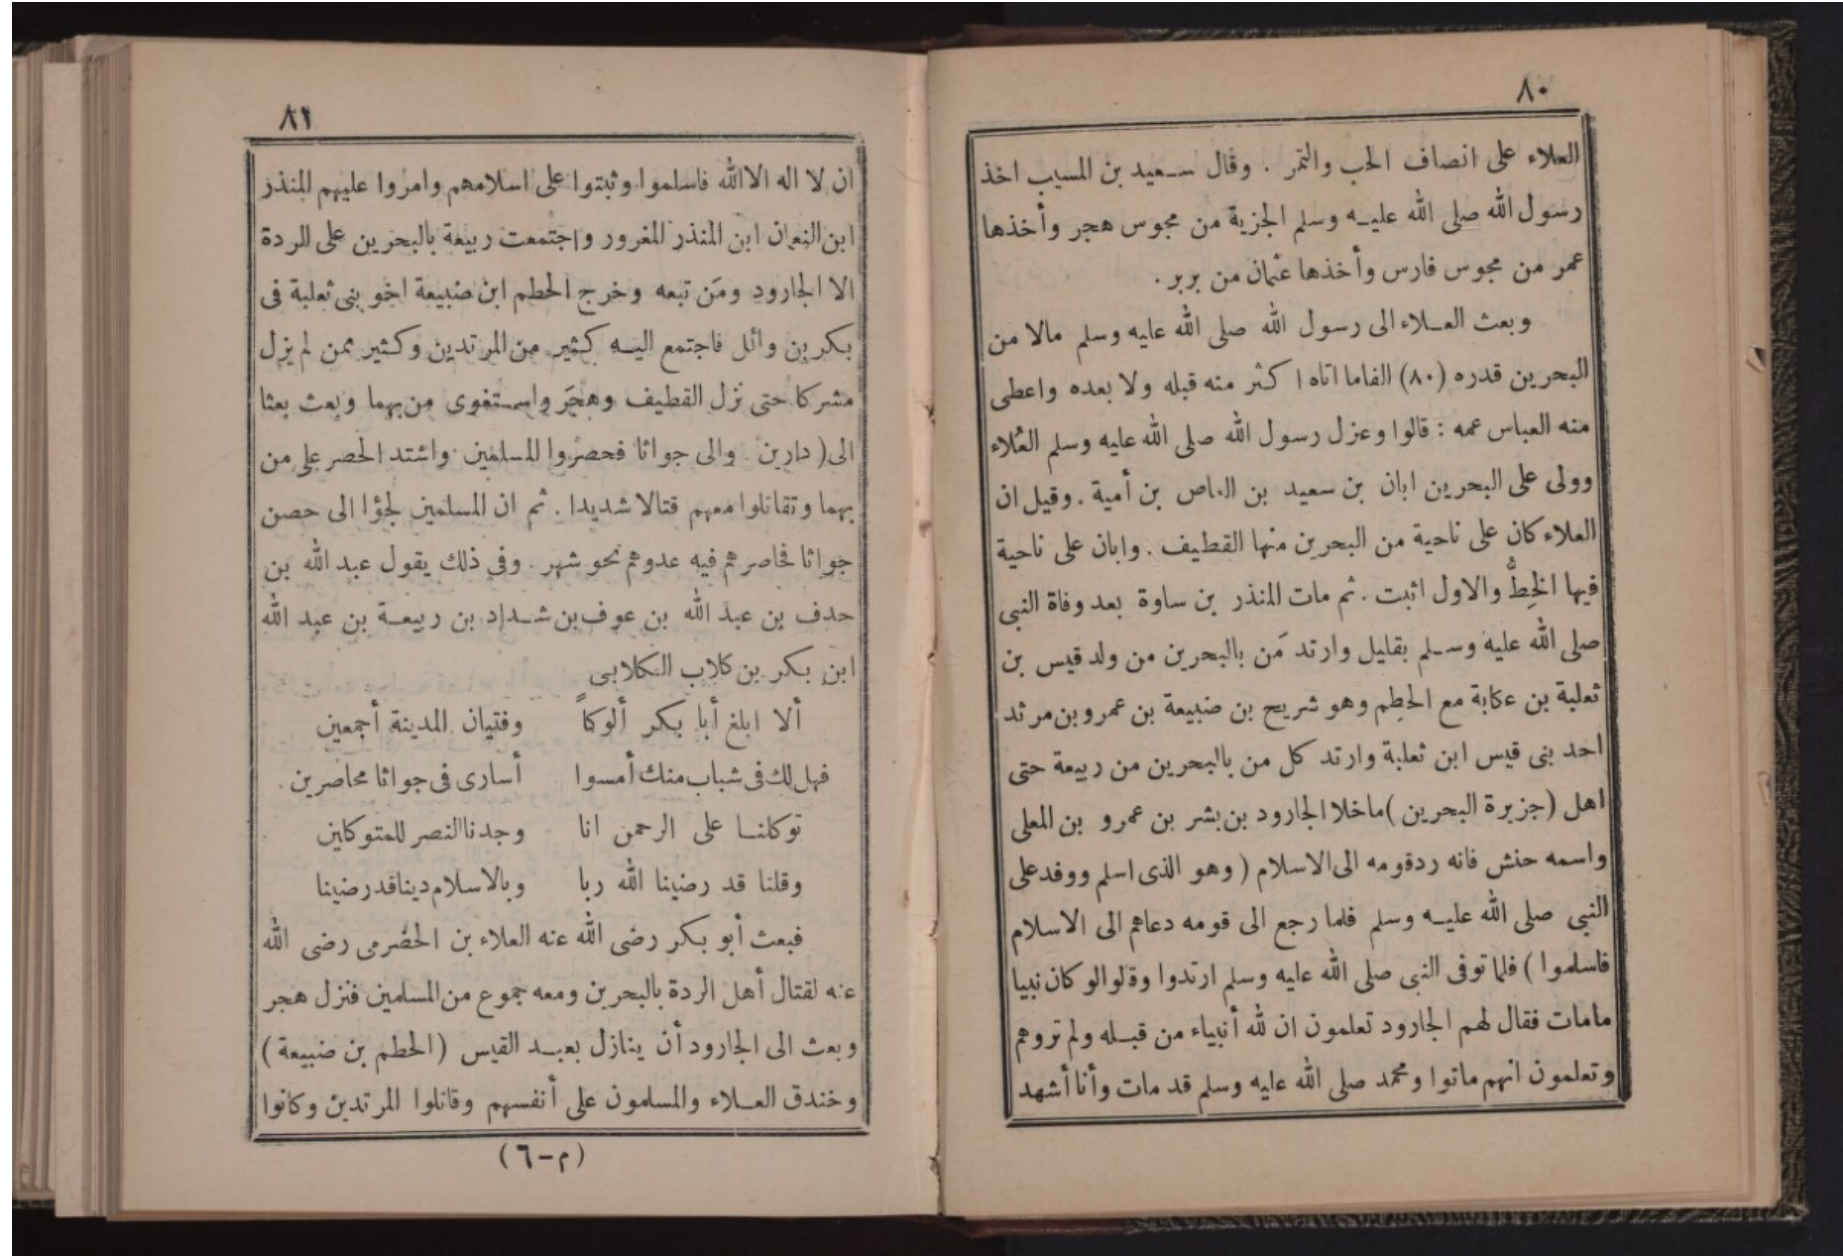 ٨٠
العلاء على انصاف الحب والتمر . وقال سـعيد بن المسيب اخذ
رسول الله صلى الله عليـه وسلم الجزية من مجوس هجر وأخذها
عمر من مجوس فارس وأخذها عثمان من بربر .
وبعث العـلاء الى رسول الله صلى الله عليه وسلم مالا من
البحرين قدره (٨٠) الفاما اتاه اكثر منه قبله ولا بعده واعطى
منه العباس عمه : قالوا وعزل رسول الله صلى الله عليه وسلم العلاء
وولى على البحرين ابان بن سعيد بن العاص بن أمية . وقيل ان
العلاء كان على ناحية من البحرين منها القطيف . وابان على ناحية
فيها الخِطُّ والاول اثبت . ثم مات المنذر بن ساوة بعد وفاة النبى
صلى الله عليه وسـلم بقليل وارتد مَن بالبحرين من ولد قيس بن
ثعلبة بن عكابة مع الحِطِم وهو شريح بن ضبيعة بن عمرو بن مرثد
احد بنى قيس ابن ثعلبة وارتد كل من بالبحرين من ربيعة حتى
اهل (جزيرة البحرين) ماخلا الجارود بن بشر بن عمرو بن المعلى
واسمه حنش فانه رد قومه الى الاسلام ( وهو الذى اسلم ووفد على
النبى صلى الله عليـه وسلم فلما رجع الى قومه دعاهم الى الاسلام
فاسلموا ) فلما توفى النبى صلى الله عليه وسلم ارتدوا وقلوا لو كان نبيا
مامات فقال لهم الجارود تعلمون ان لله أنبياء من قبـله ولم تروهم
وتعلمون انهم ماتوا ومحمد صلى الله عليه وسلم قد مات وأنا أشهد
٨١
ان لا اله الا الله فاسلموا وثبتوا على اسلامهم وامروا عليهم المنذر
ابن النعمان ابن المنذر المغرور واجتمعت ربيعة بالبحرين على الردة
الا الجارود ومَن تبعه وخرج الحطم ابن ضبيعة اخو بنى ثعلبة فى
بكر بن وائل فاجتمع اليـه كثير من المرتدين وكثير ممن لم يزل
مشركا حتى نزل القطيف وهجَر واسـتغوى من بهما وبعث بعثا
الى ( دارين . والى جواثا فحصروا المسلمين واشتد الحصر على من
بهما وتقاتلوا معهم قتالا شديدا . ثم ان المسلمين لجؤا الى حصن
جواثا فحاصرهم فيه عدوهم نحو شهر . وفى ذلك يقول عبد الله بن
حذف بن عبد الله بن عوف بن شـداد بن ربيعـة بن عبد الله
ابن بكر بن كلاب الكلابى
ألا ابلغ أبا بكر ألوكاً وفتيان المدينة أجمعين
فهل لك فى شباب منك أمسوا أسارى فى جواثا محاصرين .
توكلنـا على الرحمن انا وجدنا النصر للمتوكلين
وقلنا قد رضينا الله ربا وبالاسلام دينا قد رضينا
فبعث أبو بكر رضى الله عنه العلاء بن الحضرمى رضى الله
عنه لقتال أهل الردة بالبحرين ومعه جموع من المسلمين فنزل هجر
وبعث الى الجارود أن ينازل بعبـد القيس ( الحطم بن ضبيعة )
وخندق العـلاء والمسلمون على أنفسهم وقاتلوا المرتدين وكانوا
(م-٦)